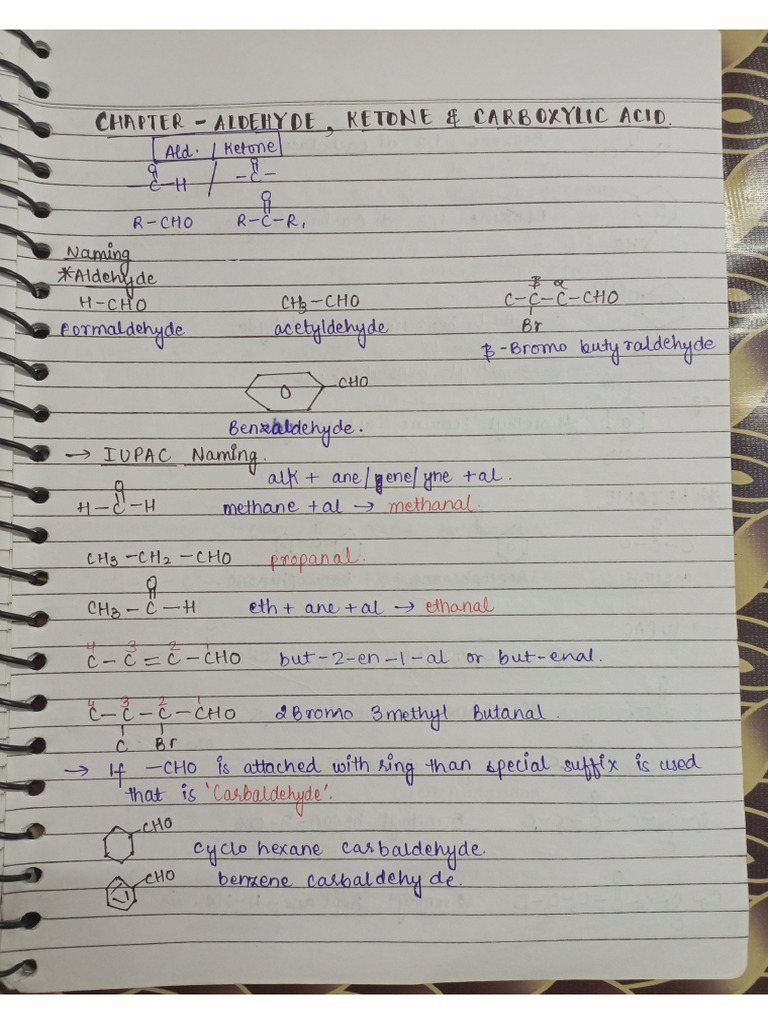 CHAPTER - ALDEHYDE, KETONE & CARBOXYLIC ACID.
Ald. / Ketone
O O
-C-H / -C-
O
R-CHO R-C-R,
Naming
*Aldehyde
β α
H-CHO CH3-CHO C-C-C-CHO
Br
Formaldehyde acetyldehyde β-Bromo butyraldehyde
CHO
Benzaldehyde.
→ IUPAC Naming.
alk + ane/ene/yne + al.
O
H-C-H methane + al → methanal.
CH3-CH2-CHO propanal.
O
CH3-C-H eth + ane + al → ethanal
4 3 2 1
C-C=C-CHO but-2-en-1-al or but-enal.
4 3 2 1
C-C-C-CHO 2Bromo 3methyl Butanal.
C Br
→ If -CHO is attached with ring than special suffix is used
that is 'Carbaldehyde'.
CHO
cyclo hexane carbaldehyde.
CHO
benzene carbaldehyde.